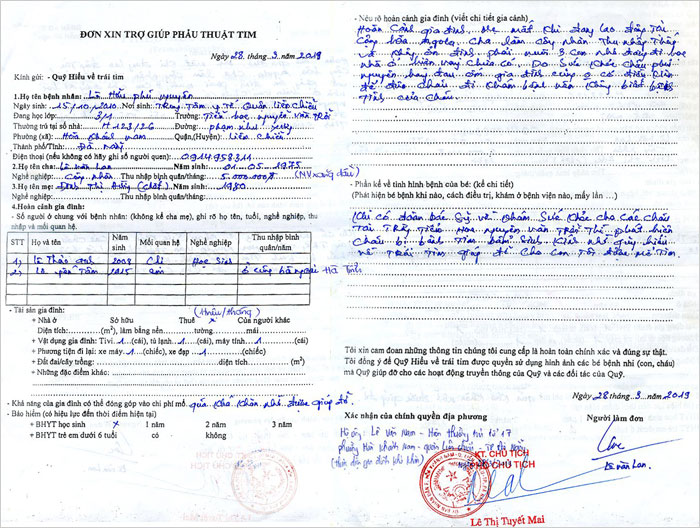 ĐƠN XIN TRỢ GIÚP PHẪU THUẬT TIM
Ngày 28 tháng 3 năm 2019
Kính gửi: - Quỹ Hiểu về trái tim
1.Họ tên bệnh nhân: Lê Hữu phú nguyên
Ngày sinh: 15/10/2010 Nơi sinh: Trung Tâm y Tế Quận liên Chiểu
Đang học lớp: 3/1 Trường: Tiểu học nguyễn văn Trỗi
Thường trú tại số nhà: H123/26 Đường: phạm như xương
Phường (xã): Hòa Khánh nam Quận,(Huyện): liên chiểu
Thành phố/Tỉnh: Đà Nẵng
Điện thoại (nếu không có hãy ghi số người quen): 0914958314
2.Họ tên cha: Lê văn Lan Năm sinh: 01.05.1975
Nghề nghiệp: Công nhân Thu nhập bình quân/tháng: 5.000.000đ (NV xăng dầu)
3.Họ tên mẹ: Thị (chết) Năm sinh: 1980
4.Hoàn cảnh gia đình:
- Số người ở chung với bệnh nhân: (không kể cha mẹ), ghi rõ họ tên, tuổi, nghề nghiệp, thu
nhập và mối quan hệ.
STT Họ và tên Năm sinh Mối quan hệ Nghề nghiệp Thu nhập bình quân/năm
1) Lê Thảo 2008 Chị Học Sinh
2) Lê Tâm 2015 em ở cùng bà ngoại Hà Tĩnh
- Tài sản gia đình: (1 triệu/tháng)
+ Nhà ở Sở hữu Thuê x Của người khác
Diện tích: (m2), làm bằng nền: tường: mái:
+ Vật dụng gia đình: Tivi 1 (cái), tủ lạnh 1 (cái), máy tính 1 (cái)
+ Phương tiện đi lại: xe máy 1 (chiếc), xe đạp 1 (chiếc)
+ Đất đai/cây trồng: diện tích (m2)
+ Những đặc điểm khác:
- Khả năng của gia đình có thể đóng góp vào chi phí mổ: quá khó khăn nhờ giúp đỡ.
- Bảo hiểm (có hiệu lực đến thời điểm hiện tại)
+ BHYT học sinh x 1 năm 2 năm 3 năm
+ BHYT trẻ em dưới 6 tuổi có không
- Nêu rõ hoàn cảnh gia đình (viết chi tiết gia cảnh)
Hoàn Cảnh gia đình mẹ mất Khi đang lao động Tại
Cộng hòa Angola, Cha làm Công nhân Thu nhập Thấp
và phải phải nuôi 3 con nhỏ đang đi học
nhà ở hiện nay chưa có. Do Sức khỏe Cháu phú
nguyên hay đau ốm gia đình cũng có điều kiện
để đưa Cháu đi Khám bệnh nên biết bệnh
Tình của Cháu
- Phần kể về tình hình bệnh của bé: (kể chi tiết)
(Phát hiện bị bệnh khi nào, cách điều trị, khám ở bệnh viện nào, mấy lần ...)
Khi có đoàn bác Sỹ về Khám Sức Khỏe cho Các cháu
Tại Trg Tiểu Học nguyễn văn Trỗi Thì phát hiện
Cháu bị bệnh Tim bẩm Sinh Kính nhờ quỹ hiểu
về Trái Tim giúp đỡ Cho Con Tôi được mổ Tim.
Tôi xin cam đoan những thông tin chúng tôi cung cấp là hoàn toàn chính xác và đúng sự thật.
Tôi đồng ý để Quỹ Hiểu về trái tim được quyền sử dụng hình ảnh các bé bệnh nhi (con, cháu)
mà Quỹ giúp đỡ cho các hoạt động truyền thông của Quỹ và các đối tác của Quỹ.
Ngày 28 tháng 3 năm 2019
Xác nhận của chính quyền địa phương
Người làm đơn
Hộ ông: Lê Văn Lan - Hiện thường trú tổ 17
phường Hòa Khánh Nam - quận Liên Chiểu - TP Đà Nẵng
(Hiện gia đình khó khăn)
KT. CHỦ TỊCH
PHÓ CHỦ TỊCH
Lê văn Lan.
Lê Thị Tuyết Mai